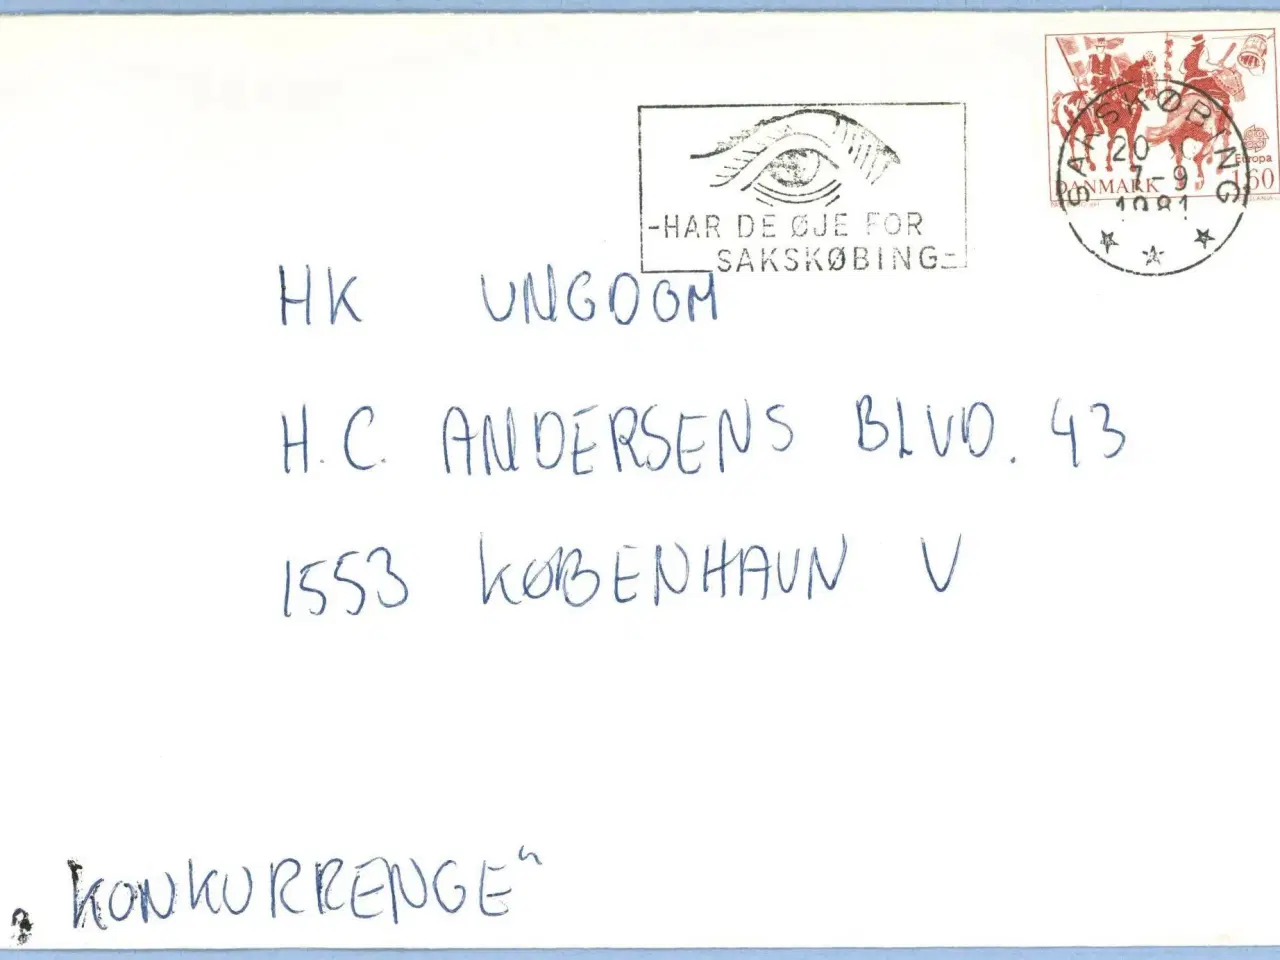 -HAR DE ØJE FOR
SAKSKØBING-
SAKSKØBING
20
7-9
1981
Europa
DANMARK 160
HK UNGDOM
H.C. ANDERSENS BLVD. 43
1553 KØBENHAVN V
„KONKURRENCE“